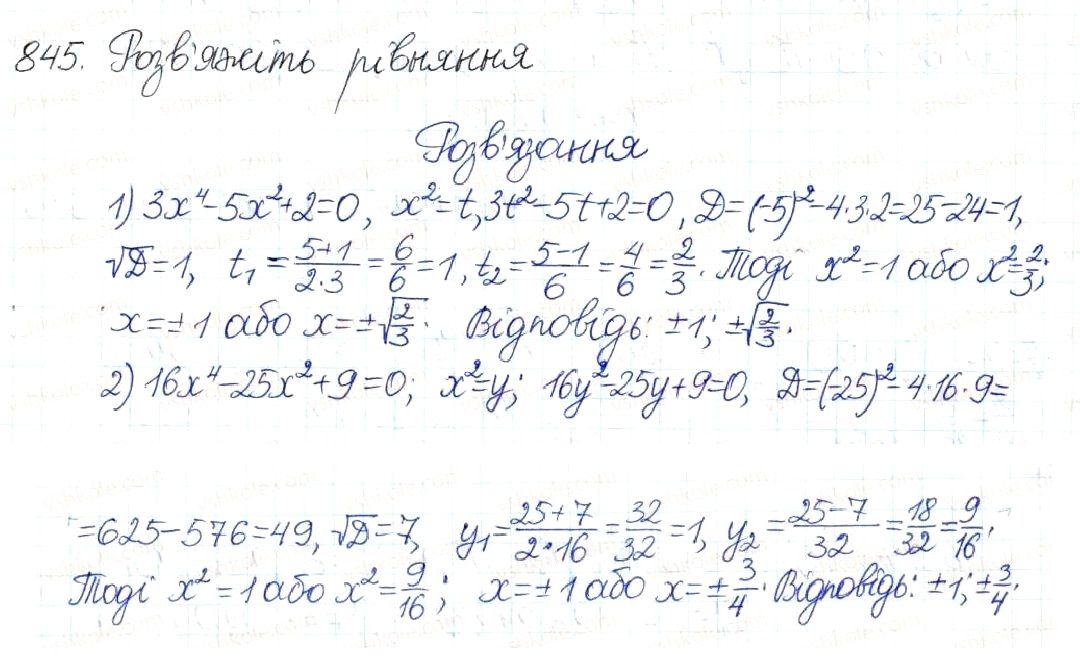 845. Розв'яжіть рівняння
Розв'язання
1) 3x⁴-5x²+2=0, x²=t, 3t²-5t+2=0, D=(-5)²-4·3·2=25-24=1,
√D=1, t₁=(5+1)/(2·3)=6/6=1, t₂=(5-1)/6=4/6=2/3. Тоді x²=1 або x²=2/3;
x=±1 або x=±√(2/3). Відповідь: ±1; ±√(2/3).
2) 16x⁴-25x²+9=0; x²=y; 16y²-25y+9=0, D=(-25)²-4·16·9=
=625-576=49, √D=7, y₁=(25+7)/(2·16)=32/32=1, y₂=(25-7)/32=18/32=9/16.
Тоді x²=1 або x²=9/16; x=±1 або x=±3/4. Відповідь: ±1; ±3/4.